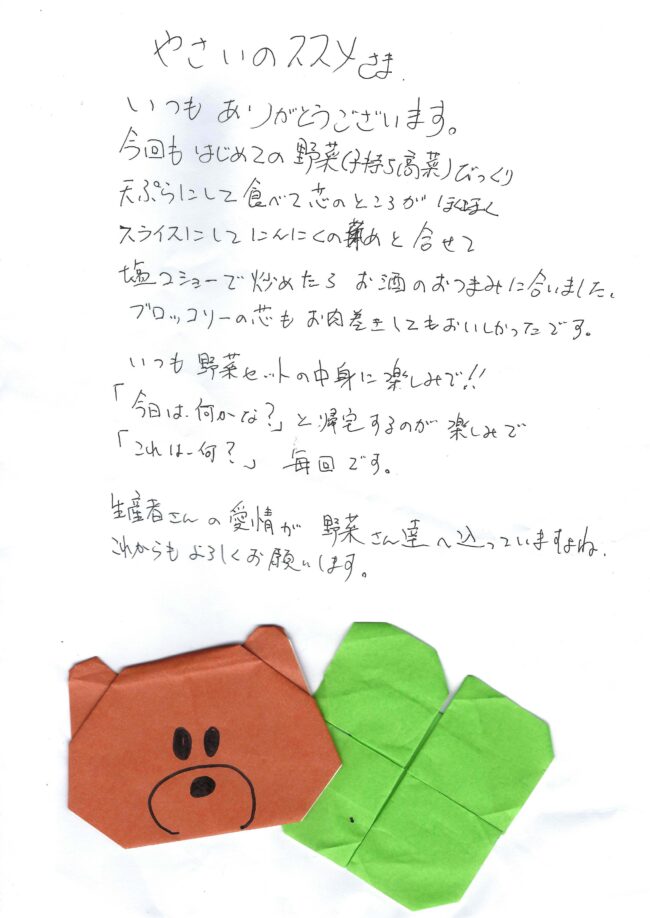 やさいのススメさま.
いつもありがとうございます。
今回もはじめての野菜(子持ち高菜)びっくり
天ぷらにして食べて芯のところがほくほく
スライスにしてにんにくの めと合せて
塩コショーで炒めたらお酒のおつまみに合いました。
ブロッコリーの芯もお肉巻きしてもおいしかったです。
いつも野菜セットの中身に楽しみで!!
「今日は何かな?」と帰宅するのが楽しみで
「これは何?」毎回です。
生産者さんの愛情が野菜さん達へ込っていますよね.
これからもよろしくお願いします。